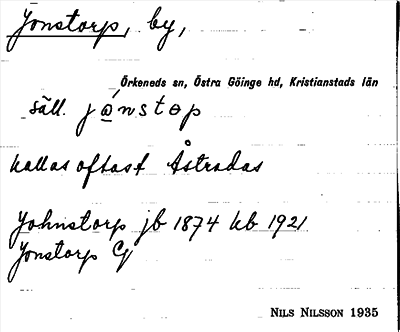 Jonstorp, by,
Örkeneds sn, Östra Göinge hd, Kristianstads län
säll. jónstɵp
kallas oftast Åstradas
Johnstorp jb 1874 kb 1921
Jonstorp G
NILS NILSSON 1935